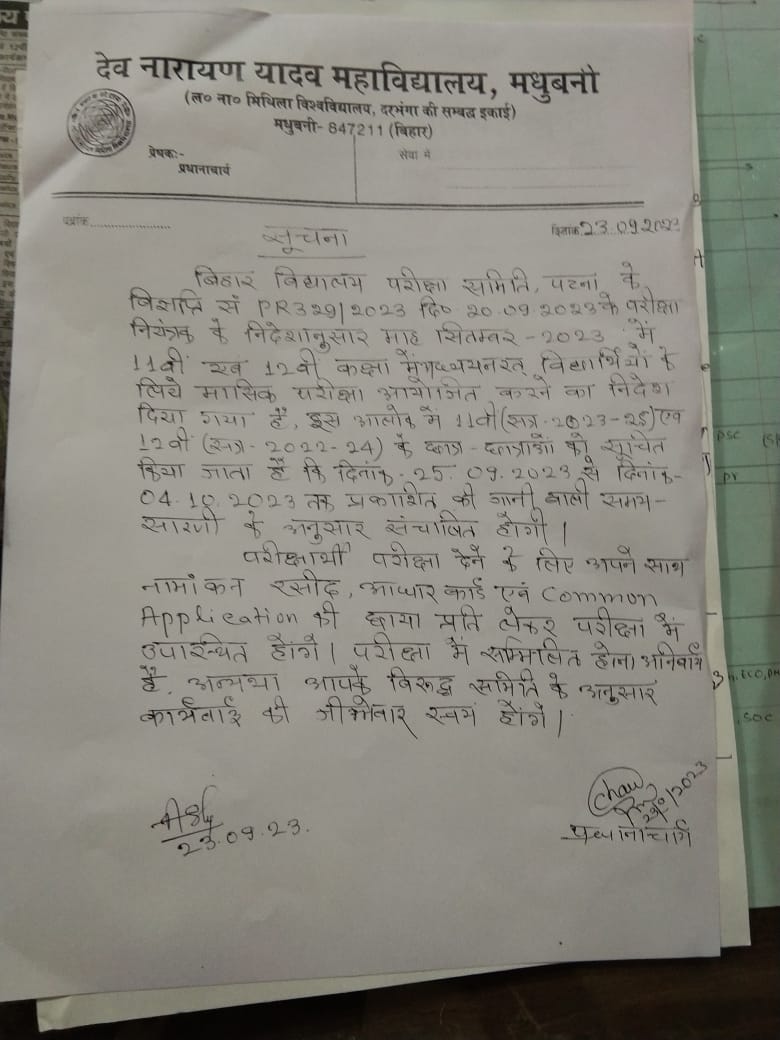 देव नारायण यादव महाविद्यालय, मधुबनी
(ल० ना० मिथिला विश्वविद्यालय, दरभंगा की सम्बद्ध इकाई)
मधुबनी- 847211 (बिहार)
प्रेषक:-
प्रधानाचार्य
सेवा में
पत्रांक.....................
दिनांक 23.09.2023
सूचना
बिहार विद्यालय परीक्षा समिति, पटना के
विज्ञप्ति सं PR 329/2023 दि० 20.09.2023 के परीक्षा
नियंत्रक के निदेशानुसार माह सितम्बर - 2023 में
11वीं एवं 12वीं कक्षा में अध्ययनरत् विद्यार्थियों के
लिये मासिक परीक्षा आयोजित करने का निदेश
दिया गया है, इस आलोक में 11वीं (सत्र-2023-25) एवं
12वीं (सत्र- 2022-24) के छात्र - छात्राओं को सूचित
किया जाता है कि दिनांक - 25.09.2023 से दिनांक-
04.10.2023 तक प्रकाशित की जानी वाली समय-
सारणी के अनुसार संचालित होंगी।
परीक्षार्थी परीक्षा देने के लिए अपने साथ
नामांकन रसीद, आधार कार्ड एवं Common
Application की छाया प्रति लेकर परीक्षा में
उपस्थित होंगे। परीक्षा में सम्मिलित होना अनिवार्य
है, अन्यथा आपके विरूद्ध समिति के अनुसार
कार्यवाई की जीम्मेवार स्वयं होंगे।
23.09.23.
प्रधानाचार्य